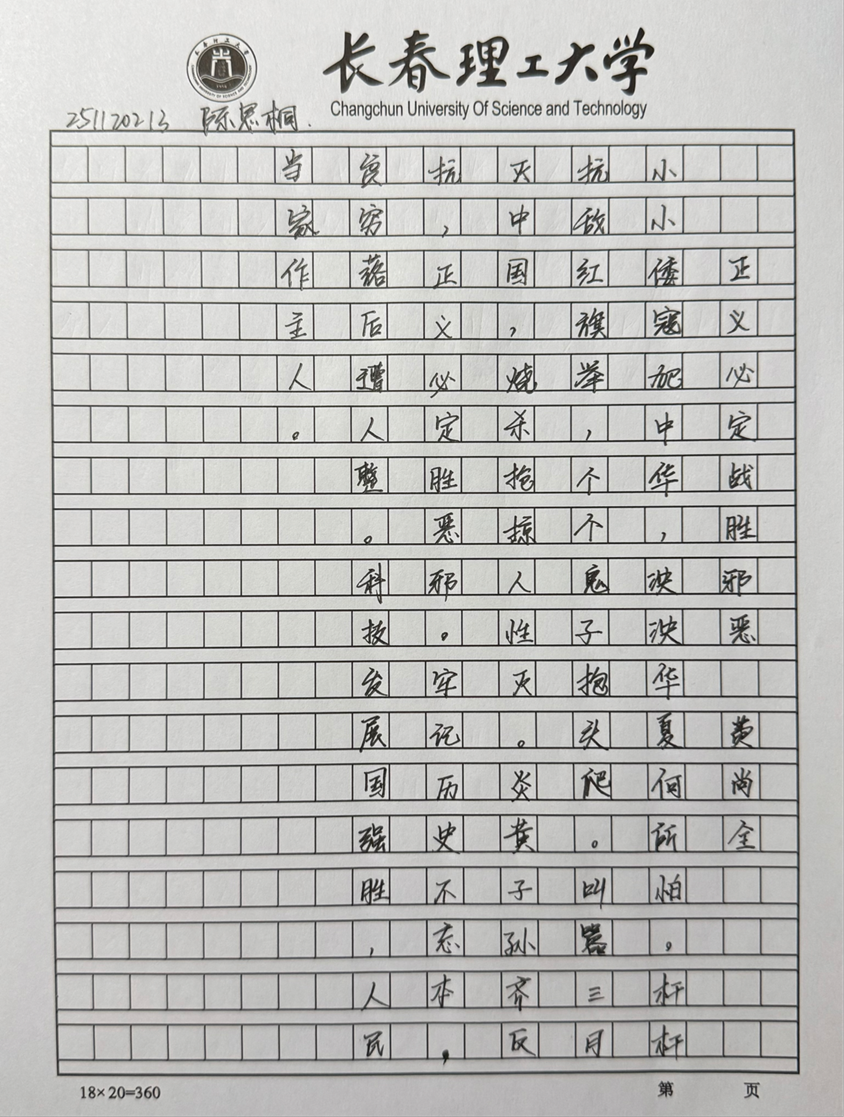 长春理工大学
Changchun University Of Science and Technology
251120213 陈思桐.
正义必定战胜邪恶
黄尚全
小小倭寇犯中华,泱泱华夏何所怕。杆杆
抗敌红旗举,个个鬼子抱头爬。叫嚣三月
灭中国,烧杀抢掠人性灭。炎黄子孙齐反
抗,正义必定胜恶邪。牢记历史不忘本,
贫穷落后遭人整。科技发展国强胜,人民
当家作主人。
18×20=360
第 页